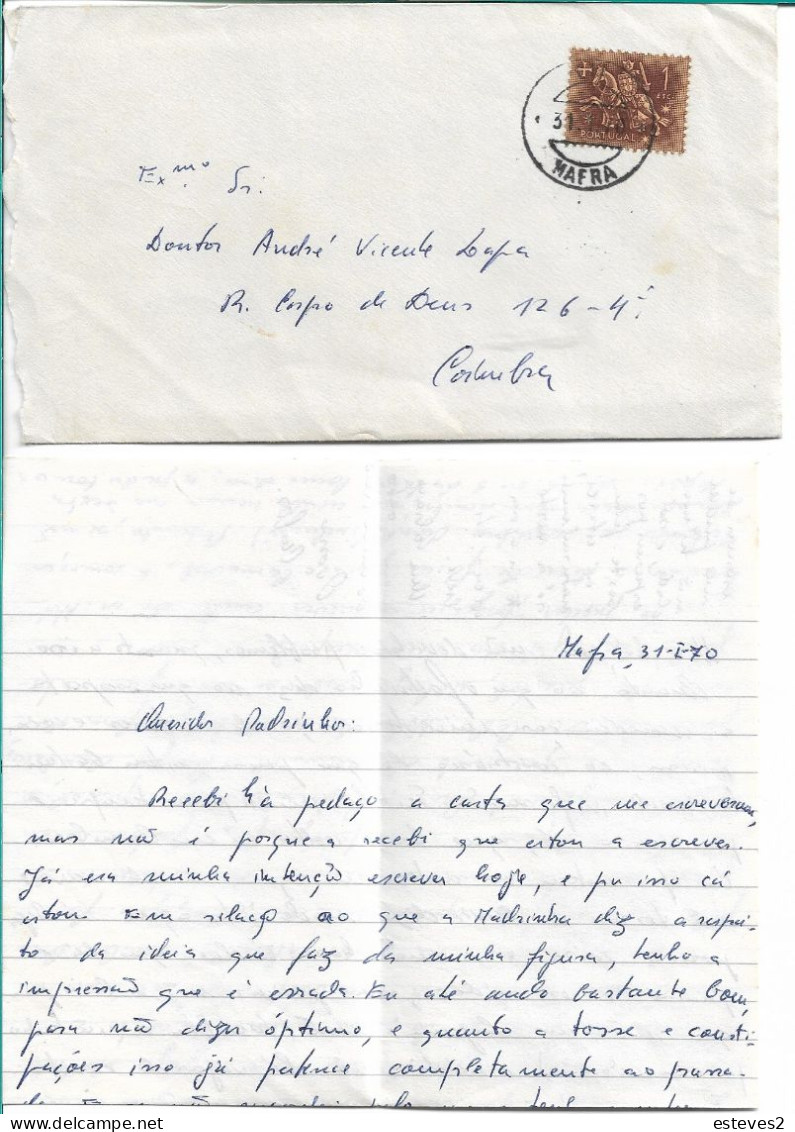 + 1
ESC.
PORTUGAL
31
MAFRA
Ex.mo Sr.
Doutor André Vicente Lapa
R. Corpo de Deus 126-4º
Coimbra
Mafra, 31-I-70
Queridos Padrinhos:
Recebi há pedaço a carta que me escreveram,
mas não é porque a recebi que estou a escrever.
Já era minha intenção escrever hoje, e por isso cá
estou. Em relação ao que a Madrinha diz a respei-
to da ideia que faz da minha figura, tenho a
impressão que é errada. Eu até ando bastante bom,
para não dizer óptimo, e quanto a tosse e consti-
pações isso já pertence completamente ao passa-
esteves2